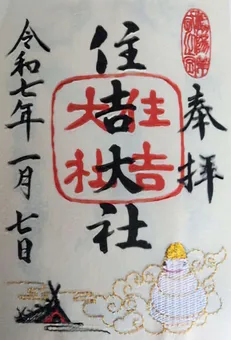 奉拝
住吉大社
住吉大社
令和七年一月七日